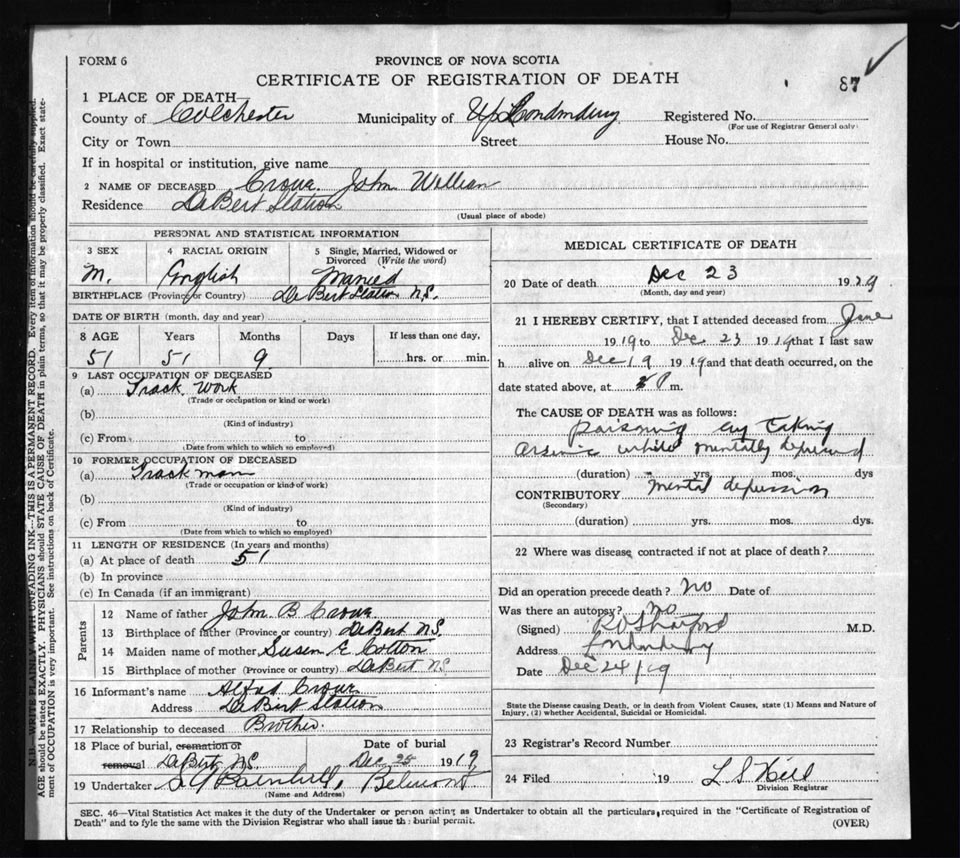 FORM 6
PROVINCE OF NOVA SCOTIA
CERTIFICATE OF REGISTRATION OF DEATH
87
1 PLACE OF DEATH
County of Colchester Municipality of Up Londonderry Registered No.
(For use of Registrar General only)
City or Town Street House No.
If in hospital or institution, give name
2 NAME OF DECEASED Crowe John William
Residence DeBert Station
(Usual place of abode)
PERSONAL AND STATISTICAL INFORMATION
3 SEX 4 RACIAL ORIGIN 5 Single, Married, Widowed or Divorced (Write the word)
M. English Married
BIRTHPLACE (Province or Country) DeBert Station N.S.
DATE OF BIRTH (month, day and year)
8 AGE Years Months Days If less than one day,
51 51 9 hrs. or min.
9 LAST OCCUPATION OF DECEASED
(a) Track Work
(Trade or occupation or kind or work)
(b)
(Kind of industry)
(c) From to
(Date from which to which so employed)
10 FORMER OCCUPATION OF DECEASED
(a) Track man
(Trade or occupation or kind of work)
(b)
(Kind of industry)
(c) From to
(Date from which to which so employed)
11 LENGTH OF RESIDENCE (In years and months)
(a) At place of death 51
(b) In province
(c) In Canada (if an immigrant)
Parents
12 Name of father John B Crowe
13 Birthplace of father (Province or country) DeBert N.S.
14 Maiden name of mother Susan E Cotton
15 Birthplace of mother (Province or country) DeBert NS
16 Informant's name Crowe
Address DeBert Station
17 Relationship to deceased Brother.
18 Place of burial, cremation or removal DeBert N.S. Date of burial Dec 25 1919
19 Undertaker Belmont
(Name and Address)
MEDICAL CERTIFICATE OF DEATH
20 Date of death Dec 23 1919
(Month, day and year)
21 I HEREBY CERTIFY, that I attended deceased from June
1919 to Dec 23 1919 that I last saw
h alive on Dec 19 1919 and that death occurred, on the
date stated above, at P m.
The CAUSE OF DEATH was as follows:
poisoning by taking
Arsenic while mentally depressed
(duration) yrs. mos. dys
CONTRIBUTORY Mental depression
(Secondary)
(duration) yrs. mos. dys.
22 Where was disease contracted if not at place of death?
Did an operation precede death? No Date of
Was there an autopsy? no
(Signed) M.D.
Address Londonderry
Date Dec 24/19
State the Disease causing Death, or in death from Violent Causes, state (1) Means and Nature of
Injury, (2) whether Accidental, Suicidal or Homicidal.
23 Registrar's Record Number
24 Filed 19 L S Hill
Division Registrar
SEC. 46—Vital Statistics Act makes it the duty of the Undertaker or person acting as Undertaker to obtain all the particulars required in the "Certificate of Registration of
Death" and to fyle the same with the Division Registrar who shall issue the burial permit.
(OVER)
N.B.—WRITE PLAINLY WITH UNFADING INK—THIS IS A PERMANENT RECORD. Every item of information should be carefully supplied.
AGE should be stated EXACTLY. PHYSICIANS should STATE CAUSE OF DEATH in plain terms, so that it may be properly classified. Exact state-
ment of OCCUPATION is very important. See instructions on back of Certificate.